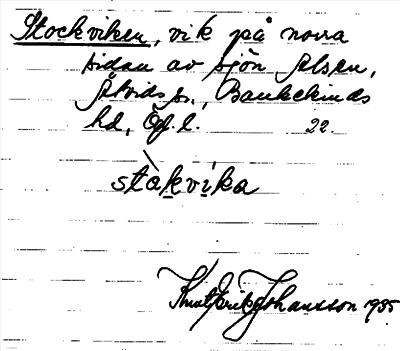 Stockviken, vik på norra
sidan av sjön Alsen,
Åtvids s., Bankekinds
hd, Ög. l. 22.
stàkvika
Knut Erik Johansson 1935